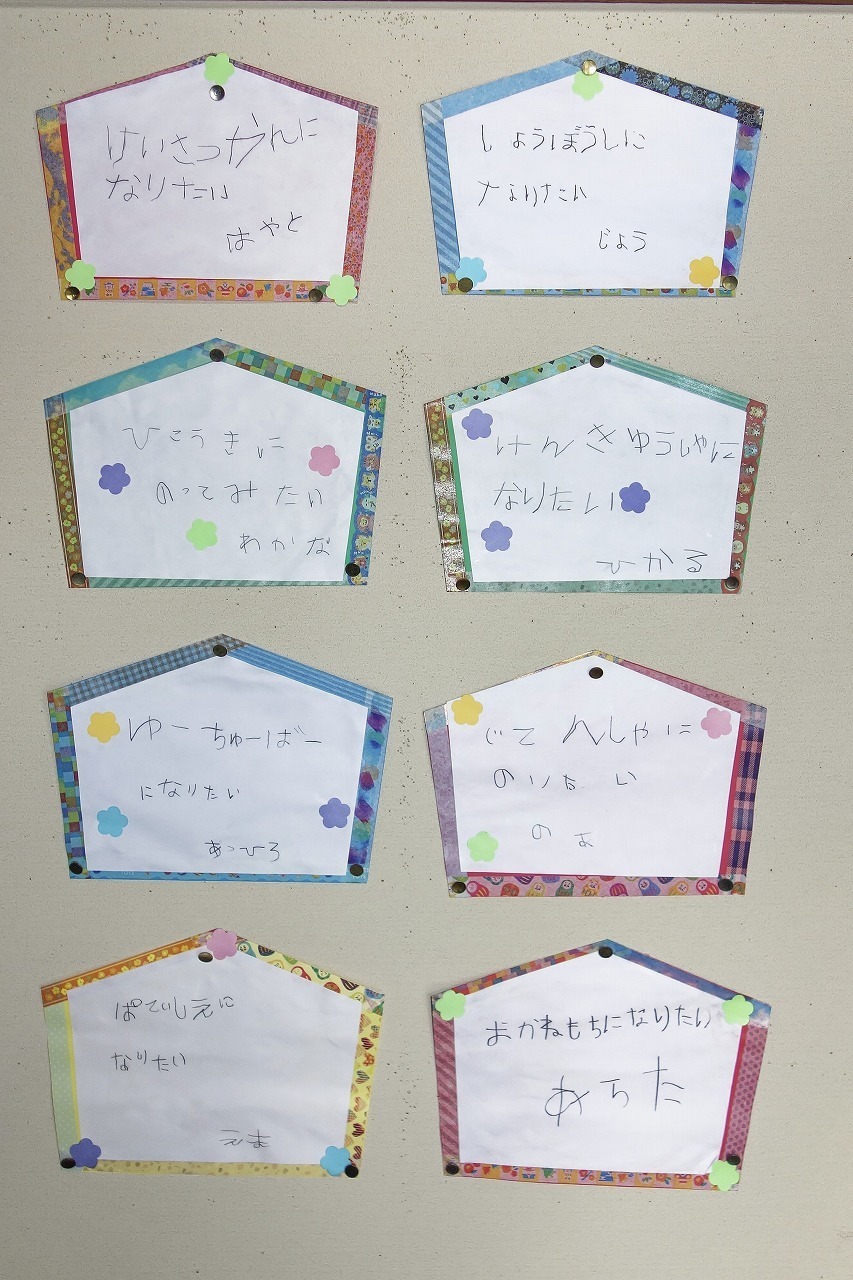 けいさつかんに
なりたい
はやと
しょうぼうしに
なりたい
じょう
ひこうきに
のってみたい
わかな
けんきゅうしゃに
なりたい
ひかる
ゆーちゅーばー
になりたい
あつひろ
じてんしゃに
のりたい
のあ
ぱてぃしえに
なりたい
えま
おかねもちになりたい
あらた